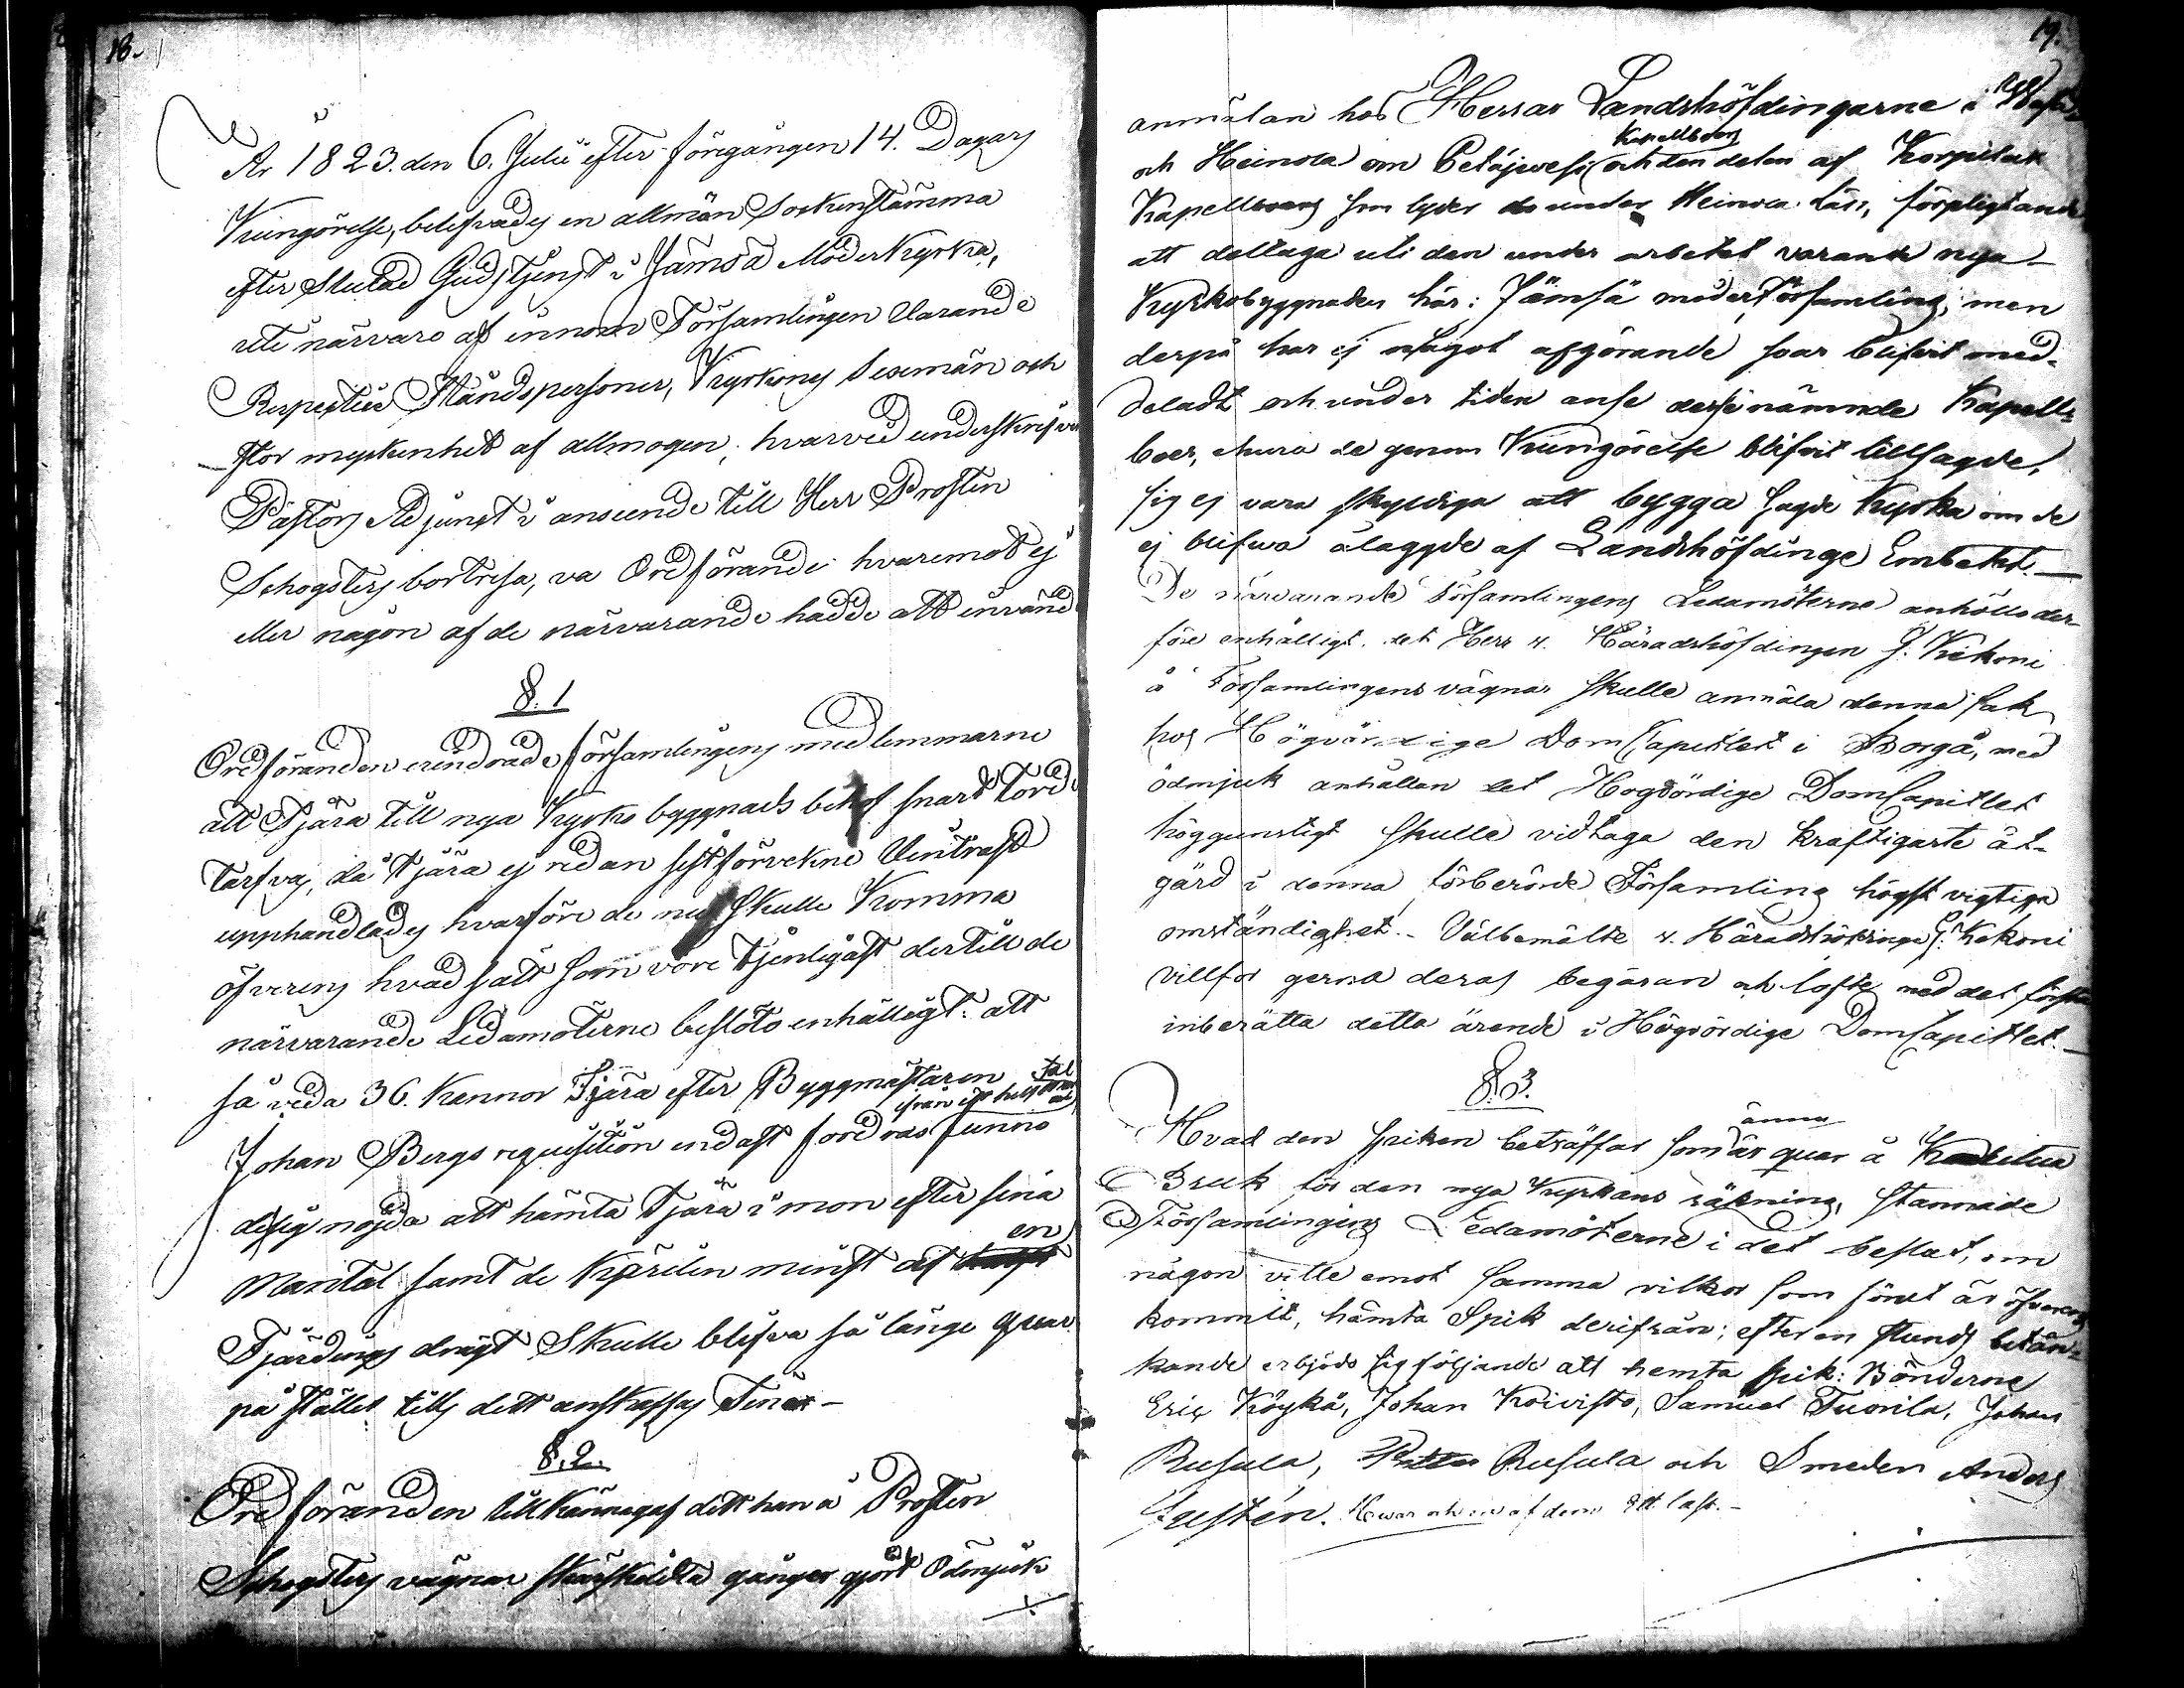 18.
År 1823. den 6. Julii efter föregången 14. Dagars
Kungörelse, blefvades en allmän Sockenstämma
efter slutad Gudstjenst i Jämsä Moderkyrka,
uti närvaro af innom Församlingen Varande
Respective Ståndspersoner, Kyrkones Sexmän och
stor myckenhet af allmogen, hvarvid underskrifven
Pastors Adjunct i anseende till Herr Prosten
Schogsters bortresa, va Ordförande hvaremot ej
eller någon af de närvarande hadde att invända
§. 1
Ordföranden erindrade församlingens medlemmarne
att Tjära till nya Kyrko byggnads behof snart torde
tarfvas, då Tjära ej redan sistförvekne Vintras
upphandlades hvarföre de nu skulle Komma
öfverens hvad sätt som vore tjenligast dertill de
närvarande Ledamöterne beslöto enhälligt: att
så vida 36. Kannor Tjära efter Byggmästaren
Johan Bergs requisition endast fordras funno
de sig nöjda att hämta Tjära i mon efter sina
en
Mantal samt de Kjärilen minst af
Fjärdings drygt Skulle blifva så länge qvar
på stället tills dett anskaffas Tinor –
§. 2.
Ordföranden tillkännagaf dett han å Prosten
Schogsters vägnar särskildta gånger gjort Ödmjuk
19.
anmälan hos Herrar Landshöfdingarne i Wasa
Kapellboer
och Heinola om Petäjvesi och den delen af Korpilax
Kapell som lyder under Heinola Län, förpligtande
att deltaga uti den under arbetet varande nya
Kyrkobyggnaden här i Jämsä moder Församling; men
derpå har ej något afgörande svar blifvit med-
deladt och under tiden anse dessenämnde Kapells-
boer, ehuru de genom Kungörelse blifvit tillsagde,
sig ej vara skyldiga att bygga sagde Kyrka om de
ej blifva ålaggde af Landshöfdinge Embetet. –
De närvarande församlingens Ledamöterne anhöllo der-
före enhälligt, det Herr v. Häradshöfdingen J. Kekoni
å Församlingens vägnar skulle anmäla denna sak
hos Högvördige DomCapitlet i Borgå, med
ödmjuk anhållan det Hogvördige DomCapitlet
höggunstigt skulle vidtaga den kraftigaste åt-
gärd i denna förberörde Församling högst vigtiga
omständighet. – Välbemälte v. Häradshöfdinge J. Kekoni
villfor gerna deras begäran och lofte med det första
inberätta detta ärende i Högvördige DomCapitlet. –
§. 3.
ännu
Hvad den spiken beträffar som är quar å
Bruk för den nya Kyrkans räkning, stannade
Församlingens Ledamöterne i det beslut, om
någon ville emot samma vilkor som förut är öfverens
kommit, hämta Spik derifrån; efter en stunds betän-
kande erbjödo sig följande att hemta spik: Bönderne
Eric Köykä, Johan Koivisto, Samuel Tuorila, Johan
Rusula, Rusula och Smeden Anders
Justén. Hwar och en af dem ett lass. –